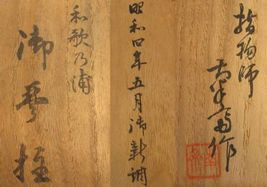 指物師
昭和四年五月御新調
和歌乃浦
御夢枕